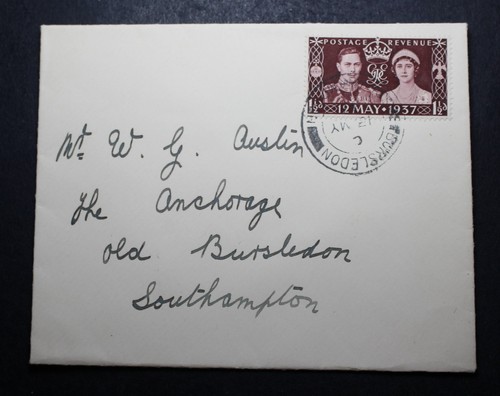 POSTAGE REVENUE
1½d 12 MAY · 1937 1½d
BURSLEDON
12 MY
Mr W. G. Austin
The Anchorage
Old Bursledon
Southampton